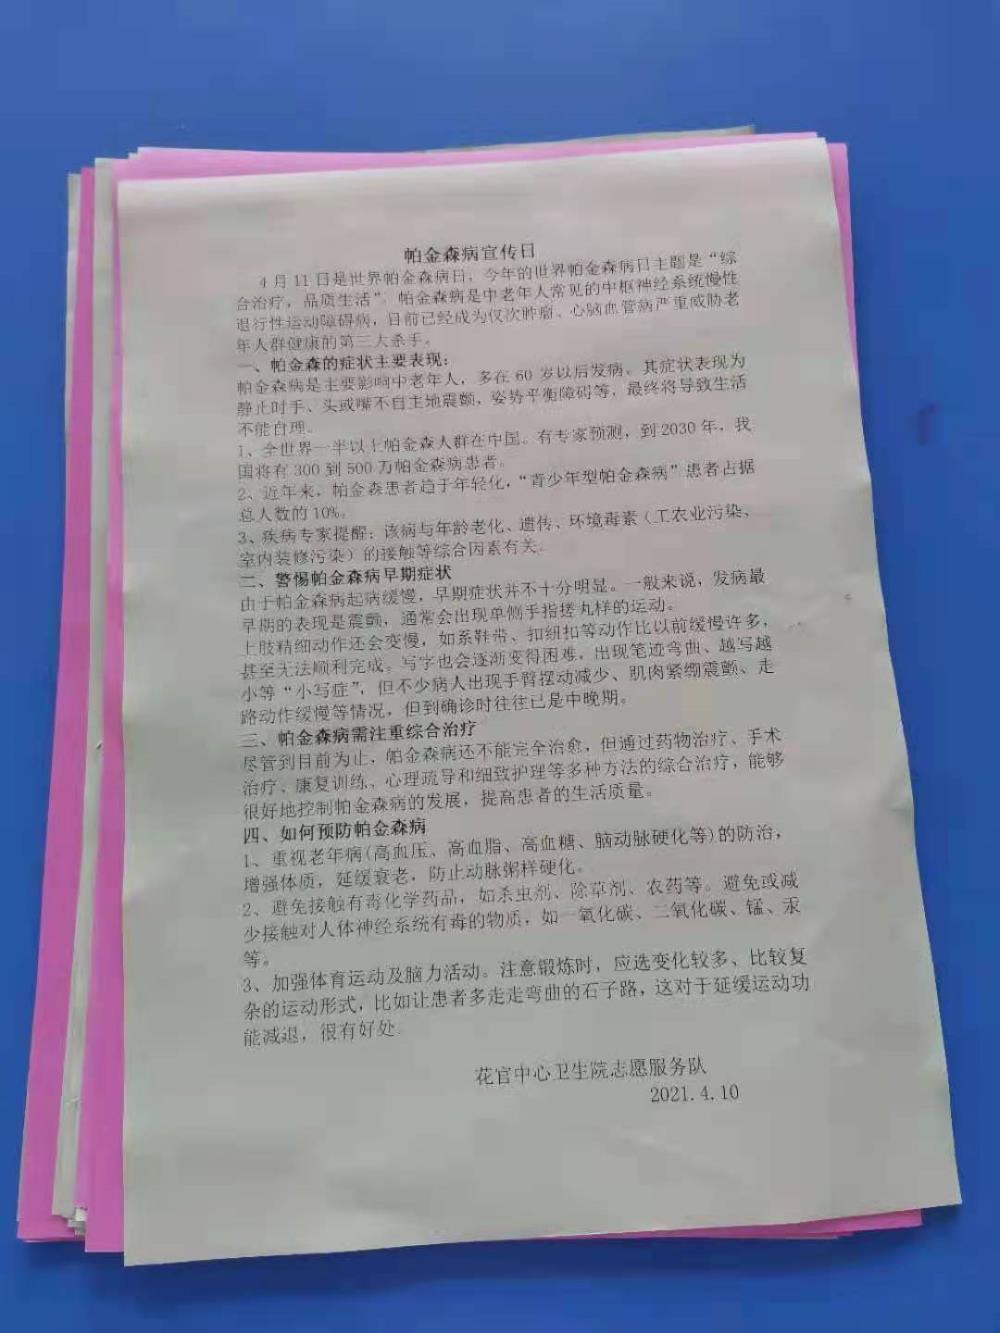 帕金森病宣传日
4月11日是世界帕金森病日，今年的世界帕金森病日主题是“综
合治疗，品质生活”。帕金森病是中老年人常见的中枢神经系统慢性
退行性运动障碍病，目前已经成为仅次肿瘤、心脑血管病严重威胁老
年人群健康的第三大杀手。
一、帕金森的症状主要表现：
帕金森病是主要影响中老年人，多在60岁以后发病。其症状表现为
静止时手、头或嘴不自主地震颤，姿势平衡障碍等，最终将导致生活
不能自理。
1、全世界一半以上帕金森人群在中国。有专家预测，到2030年，我
国将有300到500万帕金森病患者。
2、近年来，帕金森患者趋于年轻化，“青少年型帕金森病”患者占据
总人数的10%。
3、疾病专家提醒：该病与年龄老化、遗传、环境毒素（工农业污染、
室内装修污染）的接触等综合因素有关。
二、警惕帕金森病早期症状
由于帕金森病起病缓慢，早期症状并不十分明显。一般来说，发病最
早期的表现是震颤，通常会出现单侧手指搓丸样的运动。
上肢精细动作还会变慢，如系鞋带、扣纽扣等动作比以前缓慢许多，
甚至无法顺利完成。写字也会逐渐变得困难，出现笔迹弯曲、越写越
小等“小写症”，但不少病人出现手臂摆动减少、肌肉紧绷震颤、走
路动作缓慢等情况，但到确诊时往往已是中晚期。
三、帕金森病需注重综合治疗
尽管到目前为止，帕金森病还不能完全治愈，但通过药物治疗、手术
治疗、康复训练、心理疏导和细致护理等多种方法的综合治疗，能够
很好地控制帕金森病的发展，提高患者的生活质量。
四、如何预防帕金森病
1、重视老年病(高血压、高血脂、高血糖、脑动脉硬化等)的防治，
增强体质，延缓衰老，防止动脉粥样硬化。
2、避免接触有毒化学药品，如杀虫剂、除草剂、农药等。避免或减
少接触对人体神经系统有毒的物质，如一氧化碳、二氧化碳、锰、汞
等。
3、加强体育运动及脑力活动。注意锻炼时，应选变化较多、比较复
杂的运动形式，比如让患者多走走弯曲的石子路，这对于延缓运动功
能减退，很有好处.
花官中心卫生院志愿服务队
2021.4.10